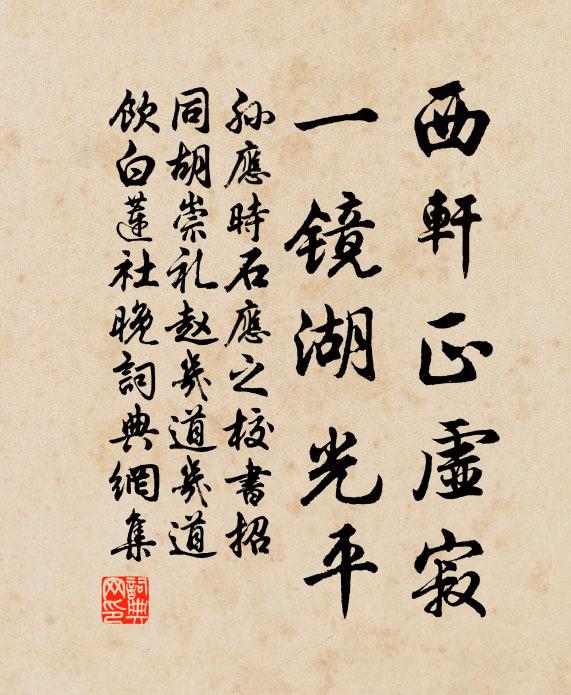 西軒正虛寂
一镜湖光平
孙應時石應之校書招
同胡崇礼赵幾道幾道
飲白蓮社晚詞典網集
詞典网印